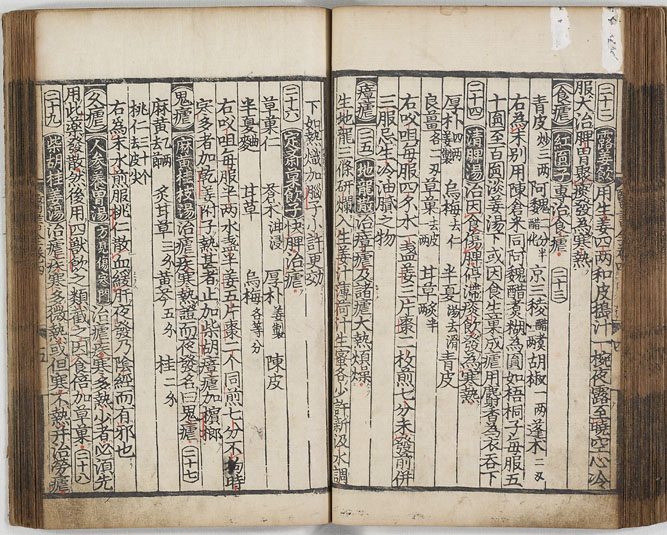 二十二 露姜飮 用生姜四兩和皮擣汁一椀夜露至曉空心冷
服大治脾胃聚痰發爲寒熱
食瘧 紅圓子 專治食瘧 二十三
青皮炒三兩 阿魏醋化 京三稜醋煑 胡椒一兩 蓬术二兩
右爲末別用陳倉米同阿魏醋煑糊爲圓如梧桐子每服五
十圓至一百圓淡姜湯下或因食生果成瘧用麝香爲衣呑下
二十四 清脾湯 治因食傷脾停滯痰飮發爲寒熱
厚朴四兩 烏梅去仁 半夏湯去滑 青皮
良薑二兩 草菓去皮 甘草炙半
右㕮咀每服四水一盞姜三片棗二枚煎七分未發前併
三服忌生冷油膩之物
瘴瘧 二五 地龍散 治瘴瘧及諸瘧大熱煩燥
生地龍條研爛 生姜汁薄荷汁生蜜各少許新汲水調
下如熱熾加腦子少許更効
二十六 定齋草菓飮子 快脾治瘧
草菓仁 蒼术泔浸 厚朴姜製 陳皮
半夏麯 甘草 烏梅各等分
右㕮咀每服半兩水盞半姜五片棗二个同煎七分不拘時
寒多者加乾姜附子熱甚者止加柴胡瘴瘧加檳榔
鬼瘧 麻黃桂枝湯 治瘧疾寒熱證而夜發名曰鬼瘧 二十七
麻黃一兩 炙甘草三分 黃芩五分 桂二分
桃仁三十个去皮尖
右爲末水煎服桃仁散血緩肝夜發乃陰經而有邪也
久瘧 人參養胃湯方見傷寒門 治瘧疾寒多熱少者必須先
用此藥發散然後用四獸飮之類截之因食倍加草菓 二十八
二十九 柴胡桂姜湯 治瘧疾寒多微熱或但寒不熱幷治勞瘧